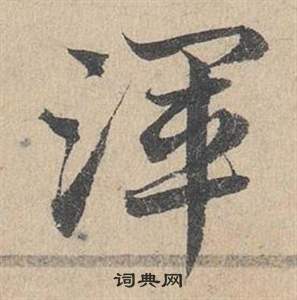 渾
词典网